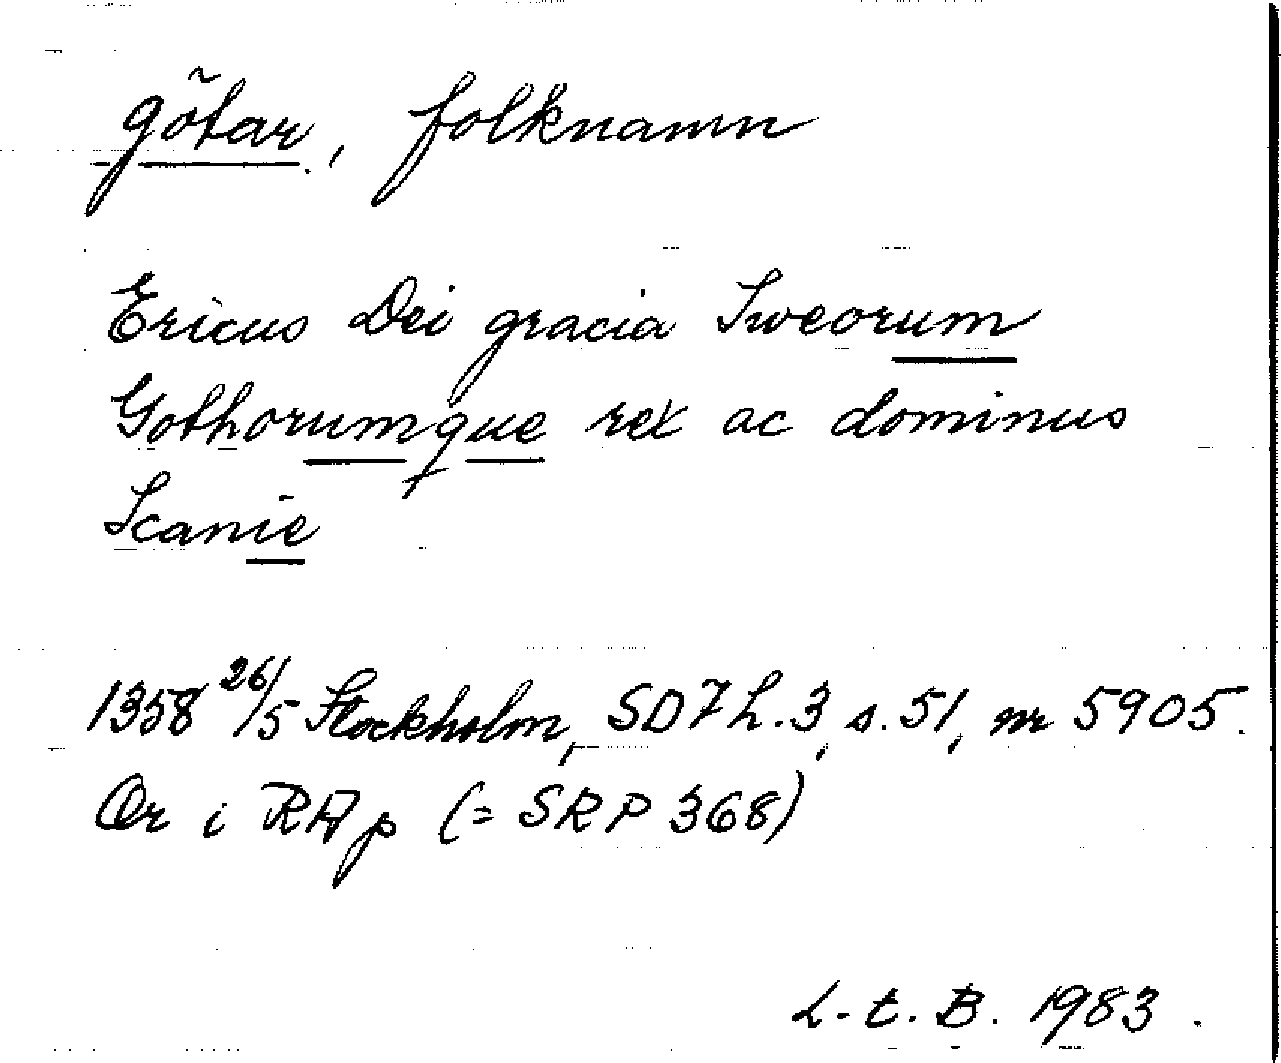 götar, folknamn
Ericus Dei gracia Sweorum
Gothorumque rex ac dominus
Scanie
1358 26/5 Stockholm, SD7 h. 3, s. 51, nr 5905.
Or i RAp (= SRP 368)
L-t. B. 1983.